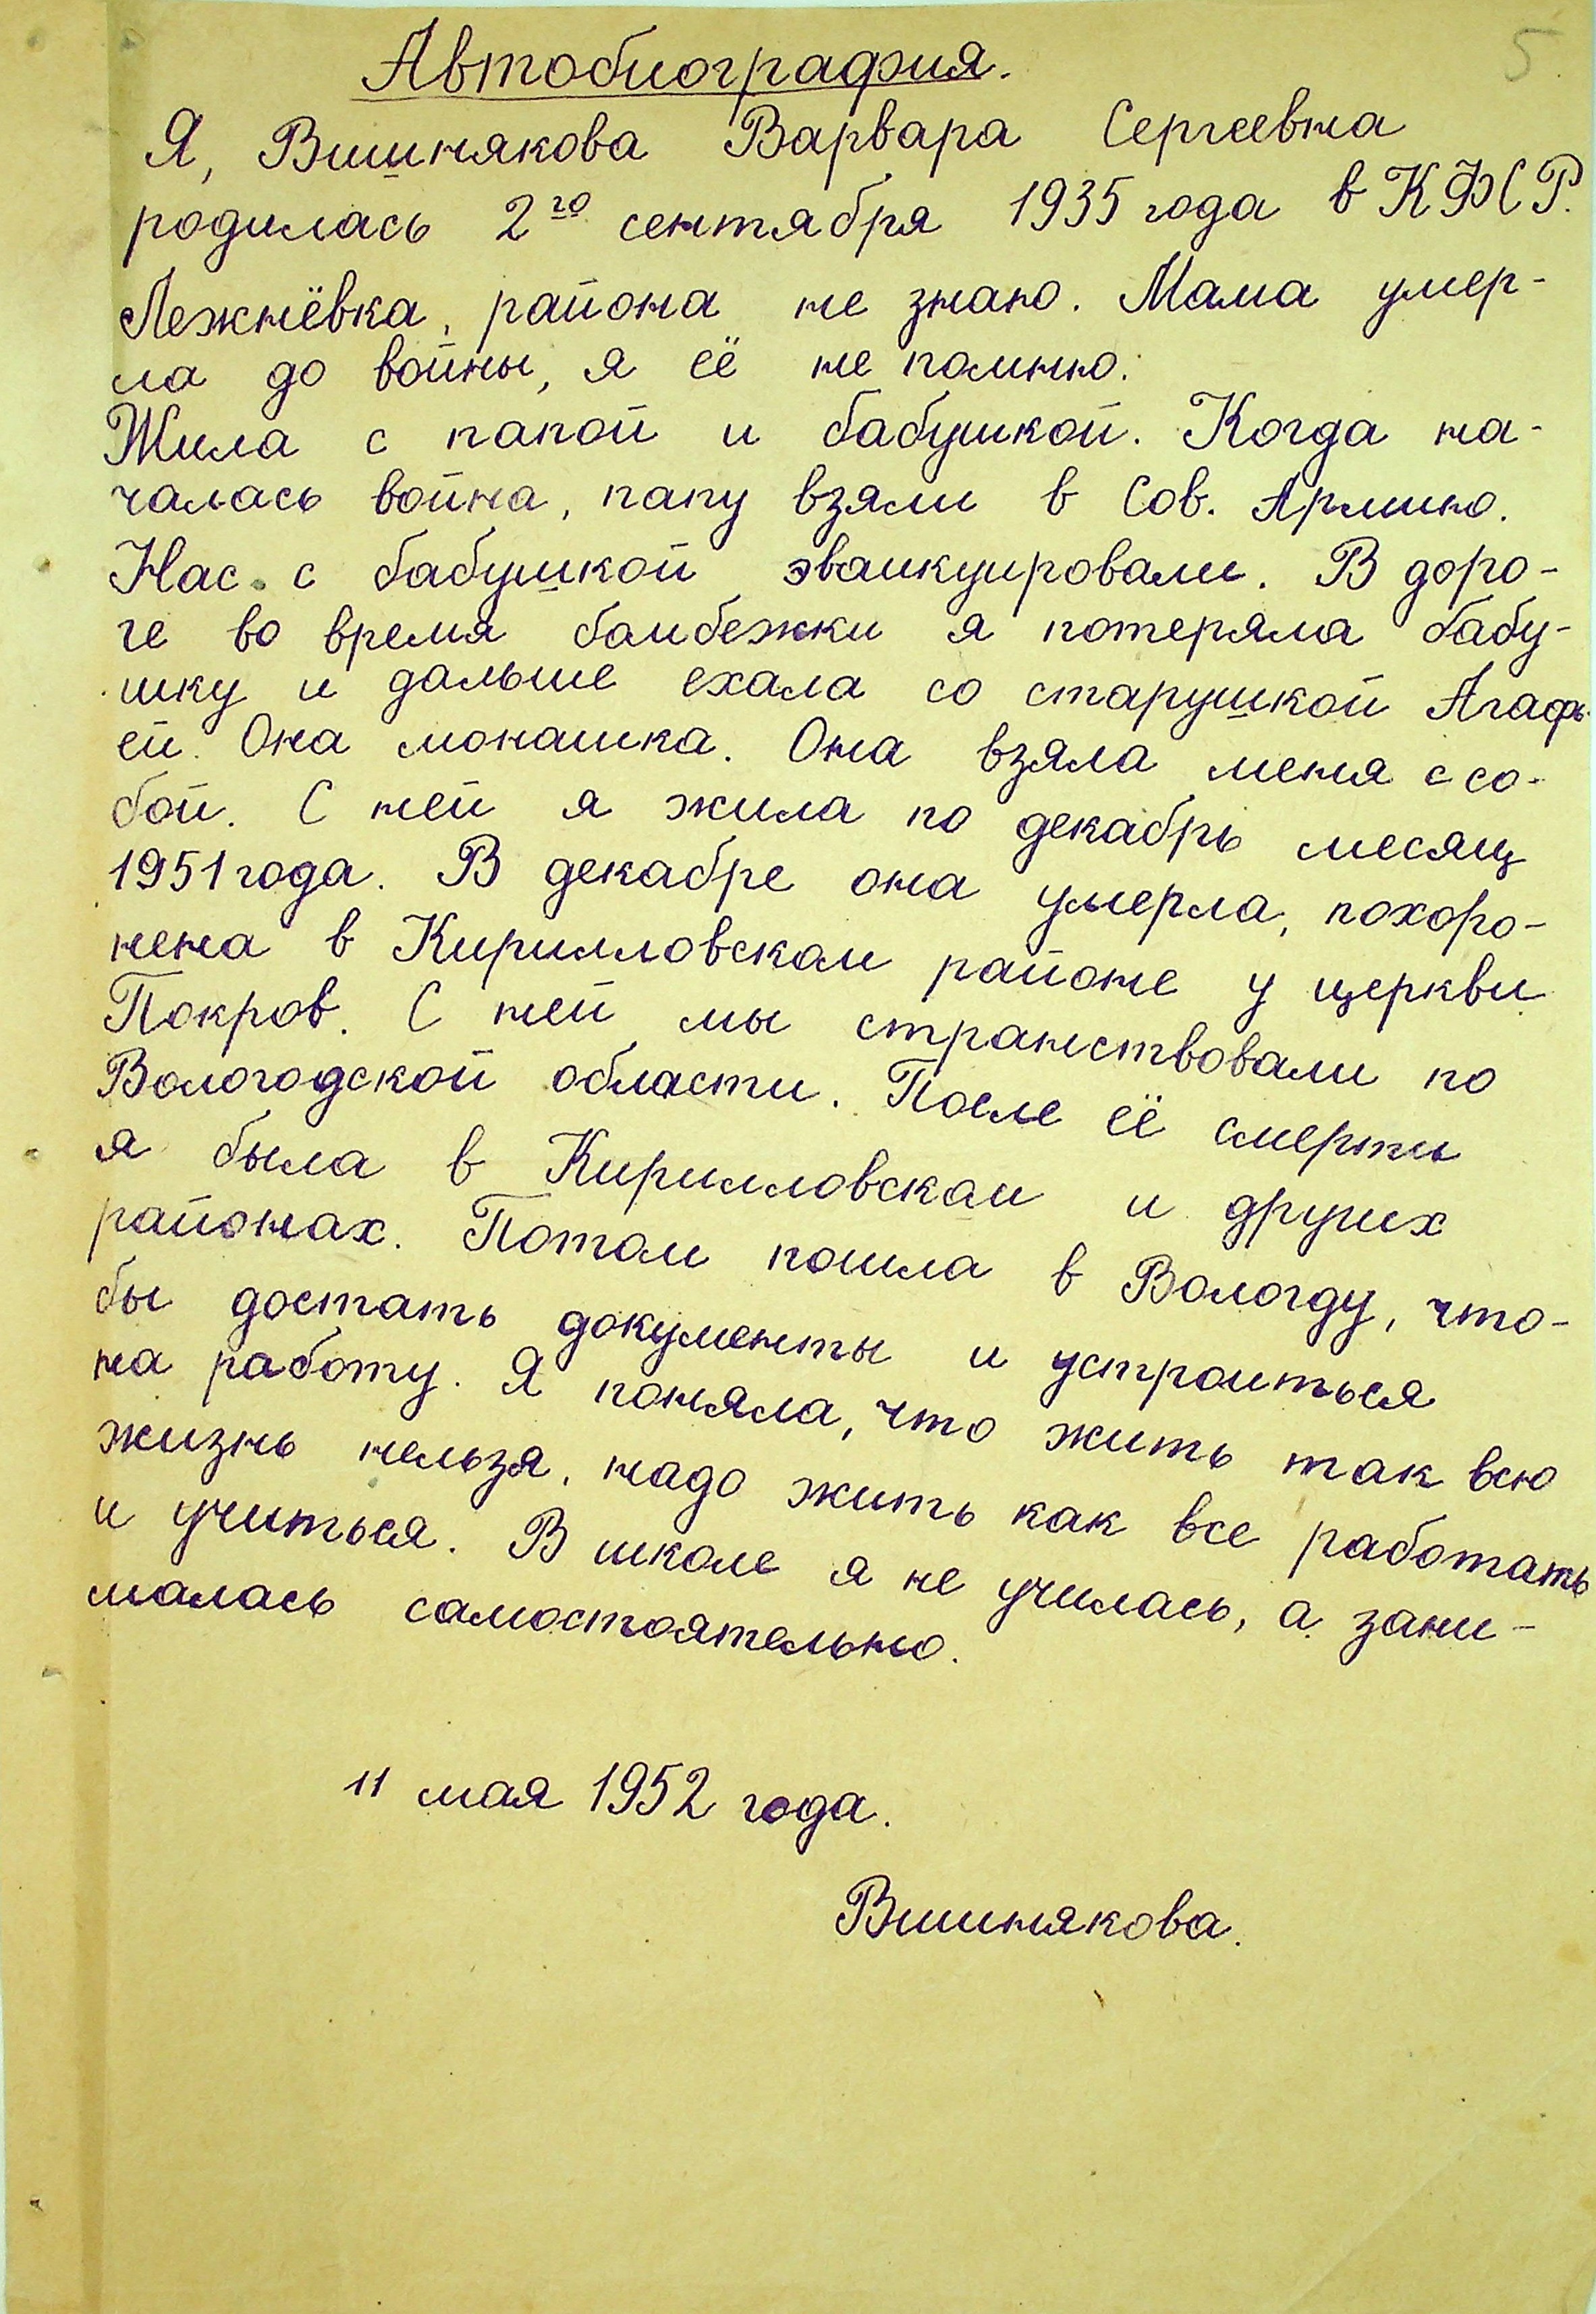 5
Автобиография.
Я, Вишнякова Варвара Сергеевна
родилась 2го сентября 1935 года в КФССР.
Лежнёвка, района не знаю. Мама умер-
ла до войны, я её не помню.
Жила с папой и бабушкой. Когда на-
чалась война, папу взяли в Сов. Армию.
Нас с бабушкой эваикуировали. В доро-
ге во время бомбежки я потеряла бабу-
шку и дальше ехала со старушкой Агафь-
ей. Она монашка. Она взяла меня с со-
бой. С ней я жила по декабрь месяц
1951 года. В декабре она умерла, похоро-
нена в Кирилловском районе у церкви
Покров. С ней мы странствовали по
Вологодской области. После её смерти
я была в Кирилловском и других
районах. Потом пошла в Вологду, что-
бы достать документы и устроиться
на работу. Я поняла, что жить так всю
жизнь нельзя, надо жить как все работать
и учиться. В школе я не училась, а зани-
малась самостоятельно.
11 мая 1952 года.
Вишнякова.